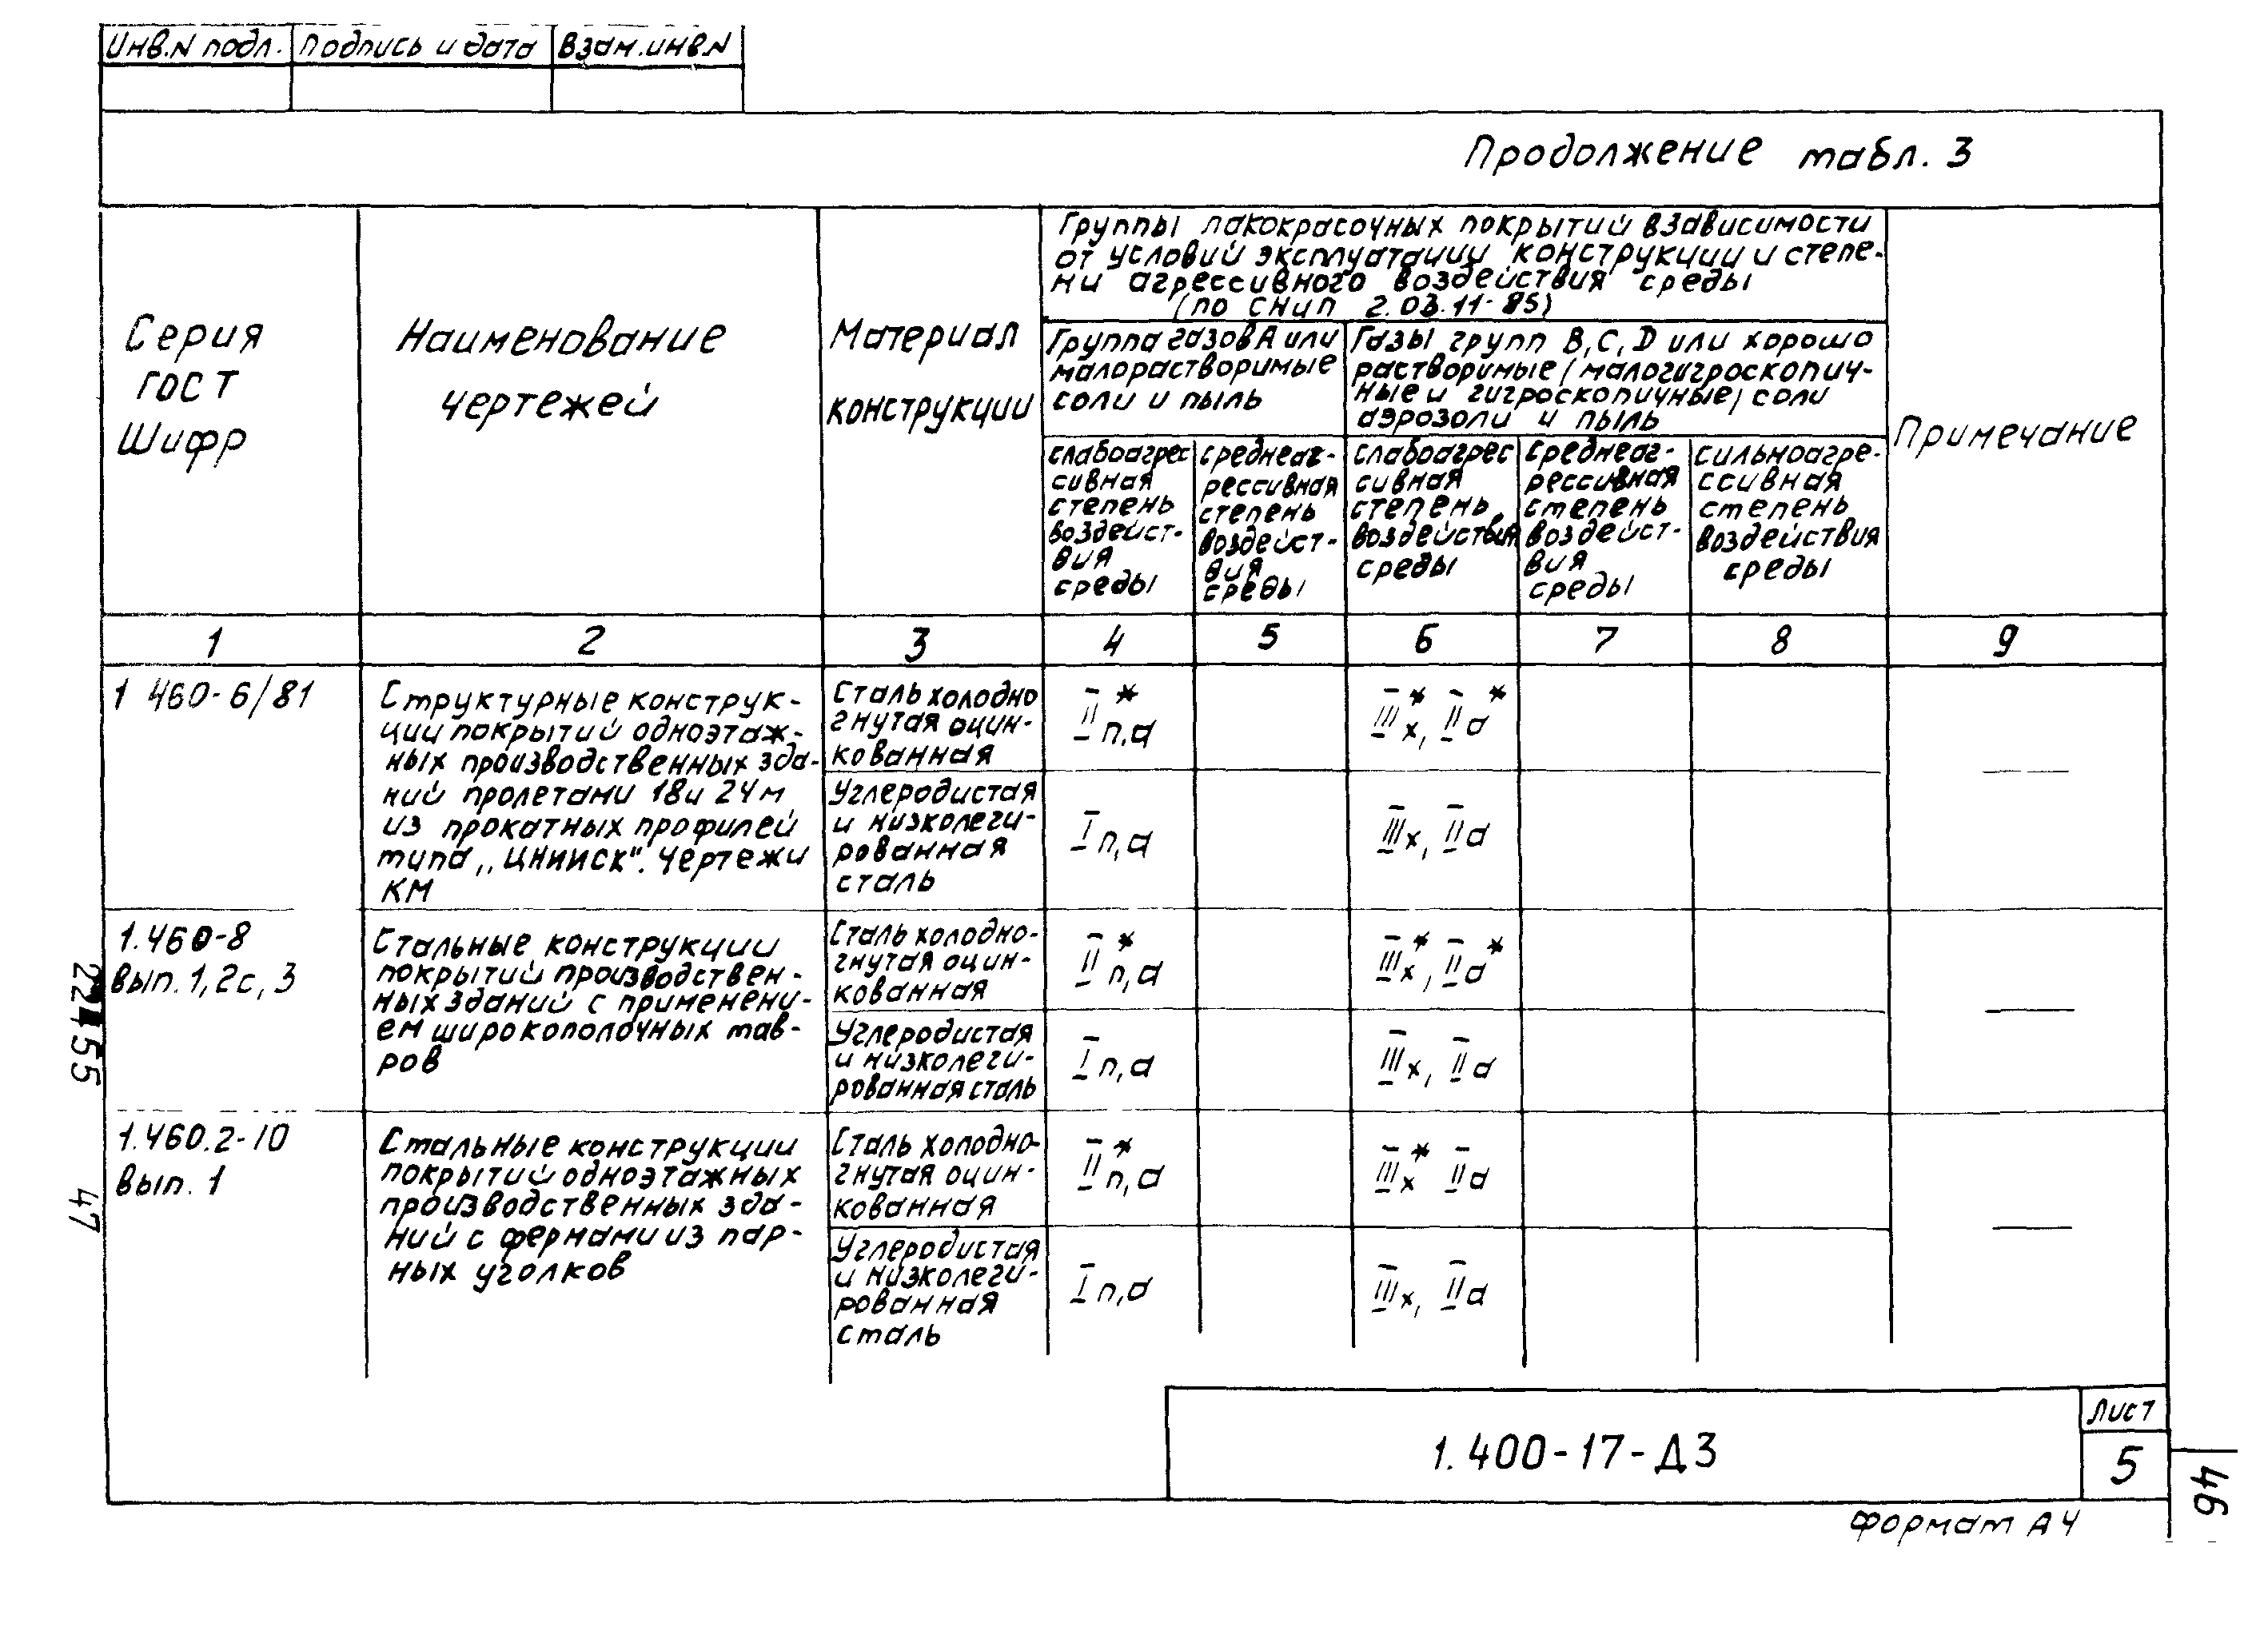 Инв.N подл. Подпись и дата Взам.инв.N
Продолжение табл. 3
Серия
ГОСТ
Шифр
Наименование
чертежей
Материал
конструкции
Группы лакокрасочных покрытий взависимости
от условий эксплуатации конструкции и степе-
ни агрессивного воздействия среды
(по СНиП 2.03.11-85)
Группа газов А или
малорастворимые
соли и пыль
Газы групп В,С,D или хорошо
растворимые (малогигроскопич-
ные и гигроскопичные) соли
аэрозоли и пыль
слабоагрес
сивная
степень
воздейст-
вия
среды
среднеаг-
рессивная
степень
воздейст-
вия
среды
слабоагрес
сивная
степень
воздействия
среды
среднеаг-
рессивная
степень
воздейст-
вия
среды
сильноагре-
ссивная
степень
воздействия
среды
Примечание
1 2 3 4 5 6 7 8 9
1 460-6/81
Структурные конструк-
ции покрытий одноэтаж-
ных производственных зда-
ний пролетами 18и 24м
из прокатных профилей
типа „ЦНИИСК". Чертежи
КМ
Сталь холодно
гнутая оцин-
кованная
II* п,а
III*х, IIа*
Углеродистая
и низколеги-
рованная
сталь
I п,а
IIIх, IIа
—
1.460-8
Вып. 1, 2с, 3
Стальные конструкции
покрытий производствен-
ных зданий с применени-
ем широкополочных тав-
ров
Сталь холодно-
гнутая оцин-
кованная
II* п,а
III*х, IIа*
Углеродистая
и низколеги-
рованная сталь
I п,а
IIIх, IIа
—
1.460.2-10
Вып. 1
Стальные конструкции
покрытий одноэтажных
производственных зда-
ний с фермами из пар-
ных уголков
Сталь холодно-
гнутая оцин-
кованная
II* п,а
III*х IIа
Углеродистая
и низколеги-
рованная
сталь
I п,а
IIIх, IIа
—
22455 47
1.400-17-Д3
Лист
5
46
Формат А4